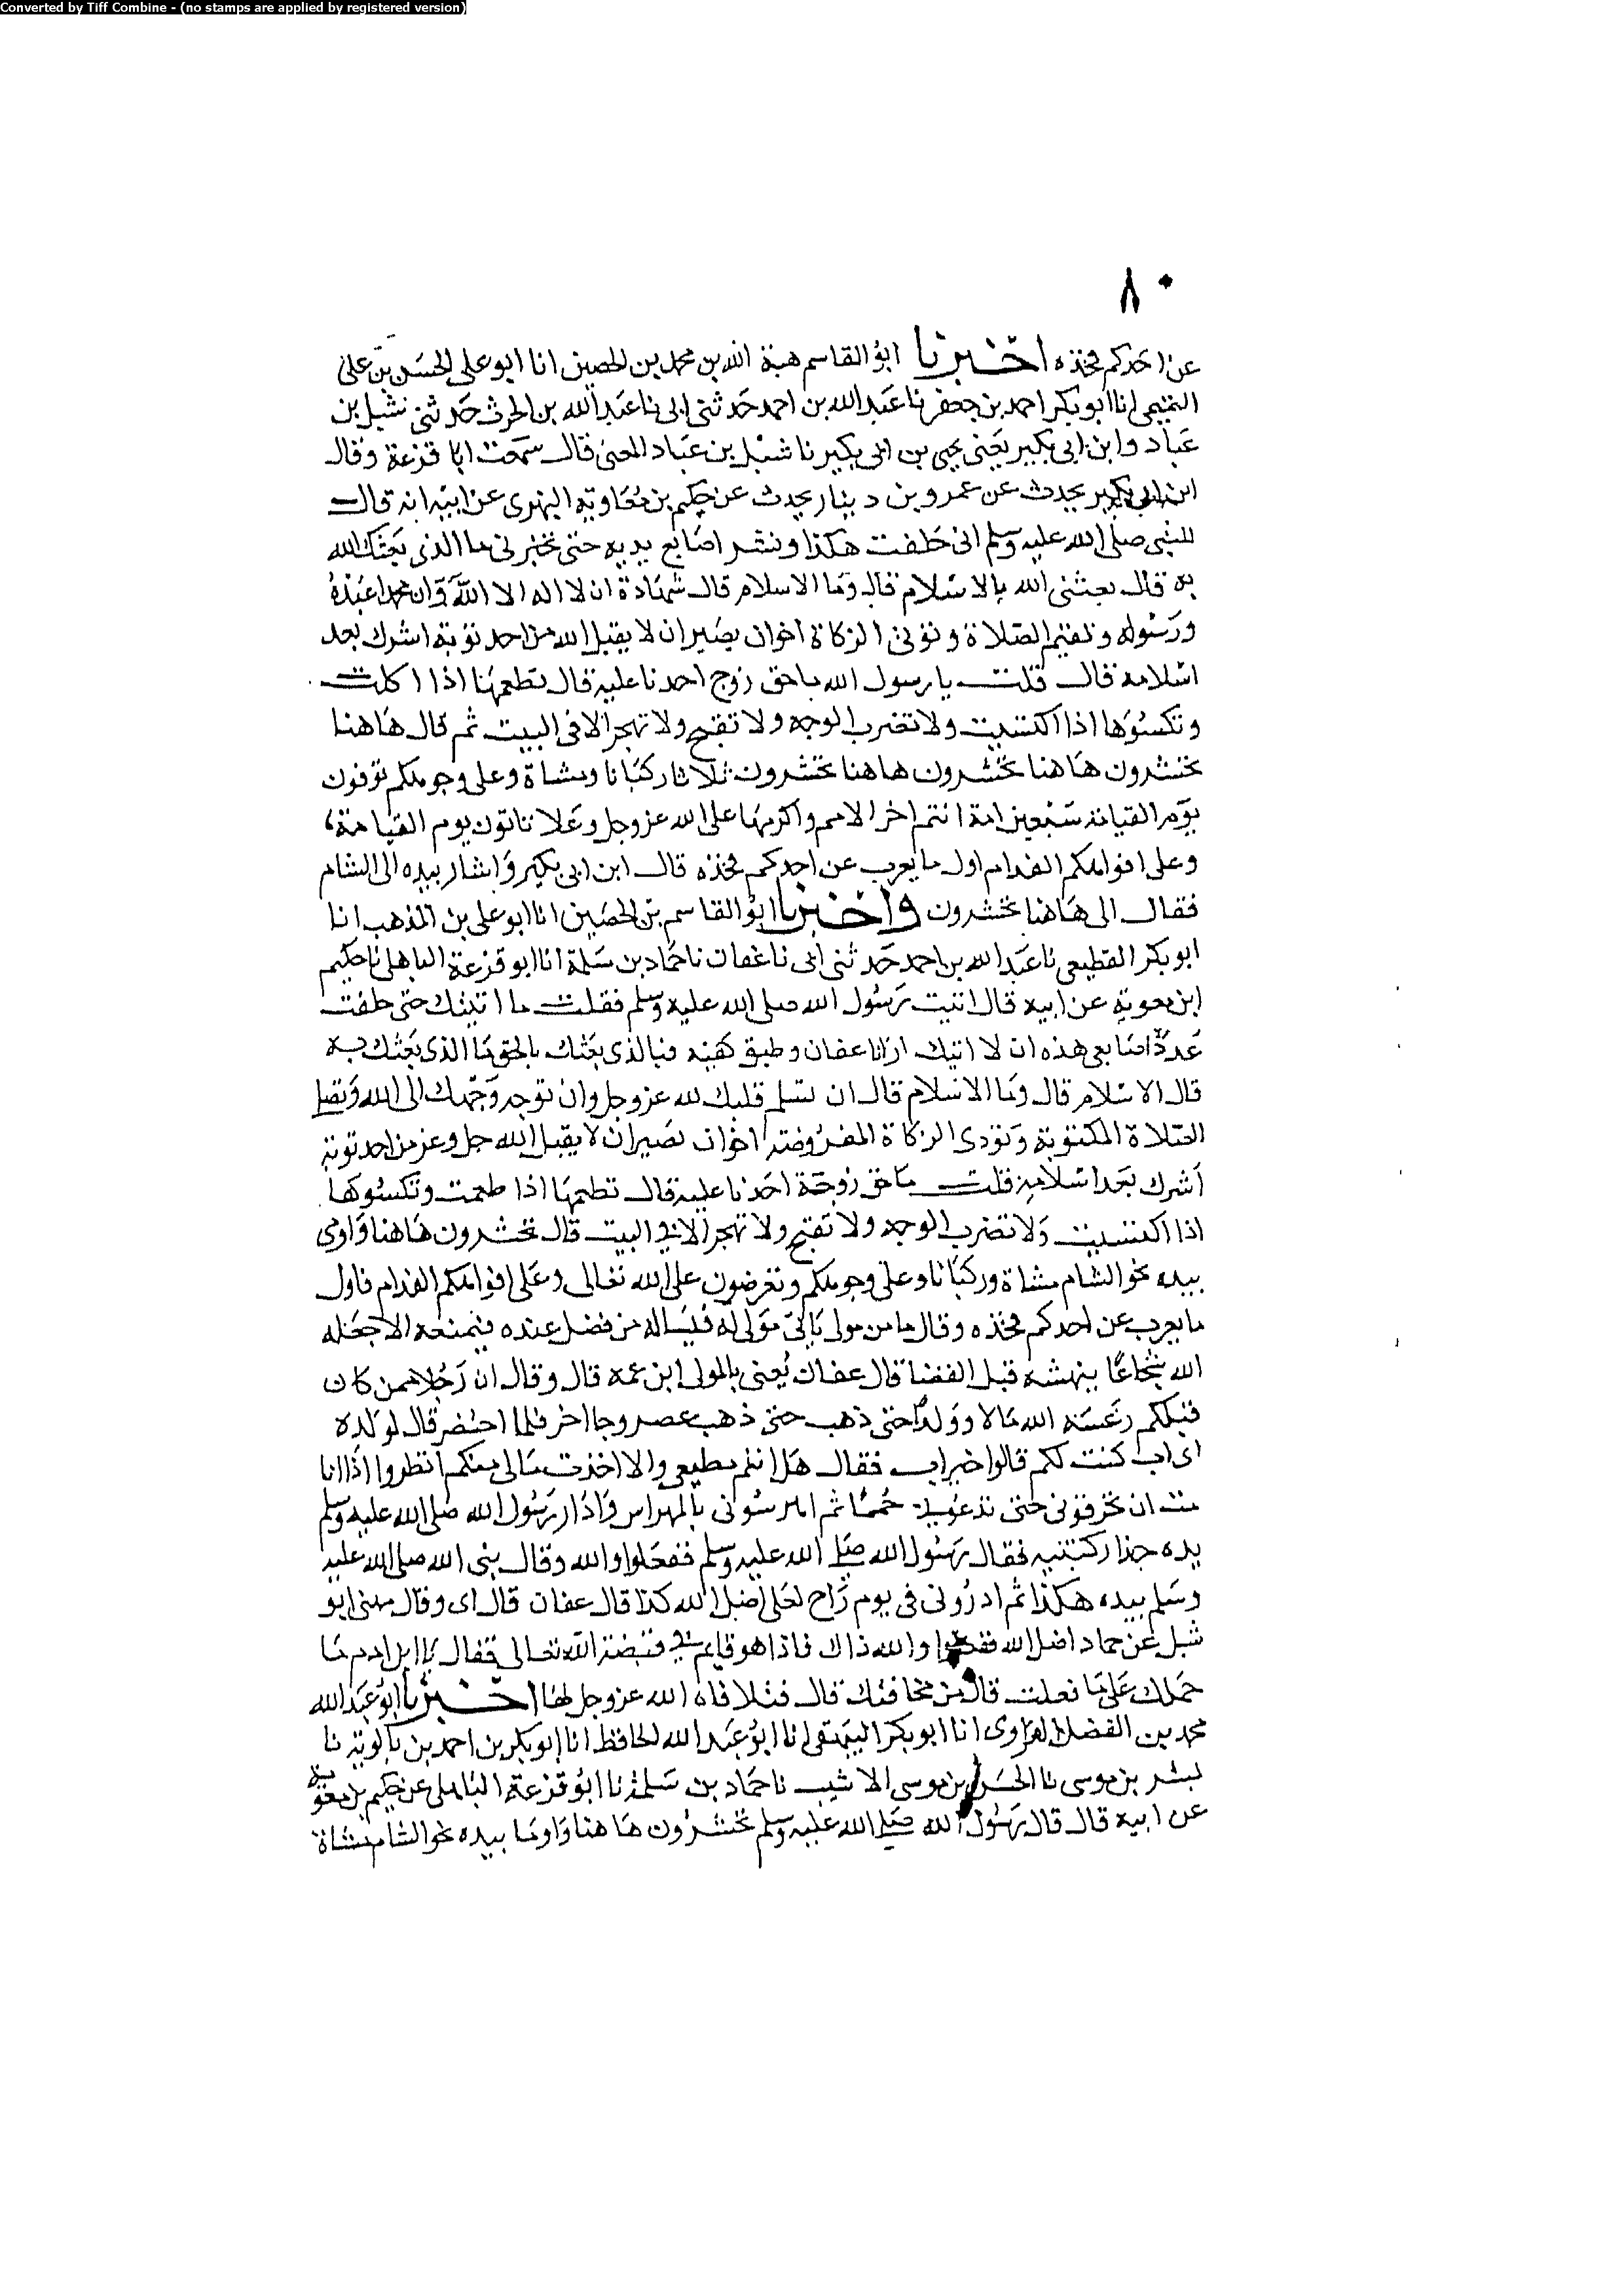 Converted by Tiff Combine - (no stamps are applied by registered version)
٨٠
عن احدكم فخذه اخبرنا ابو القاسم هبة الله بن محمد بن الحصين انا ابو علي الحسن بن علي
التميمي انا ابو بكر احمد بن جعفر نا عبد الله بن احمد حدثني ابي نا عبد الله بن الحرث حدثني شبل بن
عباد وابن ابي بكير يعني يحيى بن ابي بكير نا شبل بن عباد المعنى قال سمعت ابا قزعة وقال
ابن ابي بكير يحدث عن عمرو بن دينار يحدث عن حكيم بن معاوية البهزي عن ابيه انه قال
للنبي صلى الله عليه وسلم اني حلفت هكذا ونشر اصابع يديه حتى تخبرني ما الذي بعثك الله
به قال بعثني الله بالاسلام قال وما الاسلام قال شهادة ان لا اله الا الله وان محمدا عبده
ورسوله وتقيم الصلاة وتؤتى الزكاة اخوان نصيران لا يقبل الله من احد توبة اشرك بعد
اسلامه قال قلت يا رسول الله ما حق زوج احدنا عليه قال تطعمها اذا اكلت
وتكسوها اذا اكتسيت ولا تضرب الوجه ولا تقبح ولا تهجر الا في البيت ثم قال هاهنا
تحشرون هاهنا تحشرون هاهنا تحشرون ثلاثا ركبانا ومشاة وعلى وجوهكم توفون
يوم القيامة سبعين امة انتم اخر الامم واكرمها على الله عز وجل وعلا تاتون يوم القيامة
وعلى افواهكم الفدام اول ما يعرب عن احدكم فخذه قال ابن ابي بكير واشار بيده الى الشام
فقال الى هاهنا تحشرون واخبرنا ابو القاسم بن الحصين انا ابو علي بن المذهب انا
ابو بكر القطيعي نا عبد الله بن احمد حدثني ابي نا عفان نا حماد بن سلمة انا ابو قزعة الباهلي نا حكيم
ابن معوية عن ابيه قال اتيت رسول الله صلى الله عليه وسلم فقلت ما اتيتك حتى حلفت
عدد اصابعي هذه ان لا اتيك ارانا عفان وطبق كفيه فبالذي بعثك بالحق ما الذي بعثك به
قال الاسلام قال وما الاسلام قال ان تسلم قلبك لله عز وجل وان توجه وجهك الى الله وتصلي
الصلاة المكتوبة وتؤدي الزكاة المفروضة اخوان نصيران لا يقبل الله جل وعز من احد توبة
اشرك بعد اسلامه قلت ما حق زوجة احدنا عليه قال تطعمها اذا طعمت وتكسوها
اذا اكتسيت ولا تضرب الوجه ولا تقبح ولا تهجر الا في البيت قال تحشرون هاهنا واومى
بيده نحو الشام مشاة وركبانا وعلى وجوهكم وتعرضون على الله تعالى وعلى افواهكم الفدام فاول
ما يعرب عن احدكم فخذه وقال ما من مولى ياتي مولى له فيساله من فضل عنده فيمنعه الا جعله
الله شجاعا ينهشه قبل القضا قال عفان يعني بالمولى ابن عمه قال وقال ان رجلا ممن كان
قبلكم رغسه الله مالا وولدا حتى ذهب عصر وجا اخر فلما احتضر قال لولده
اي اب كنت لكم قالوا خير اب فقال هل انتم مطيعي والا اخذت مالي منكم انظروا اذا انا
مت ان تحرقوني حتى تدعوني حمما ثم اهرسوني بالمهراس وادار رسول الله صلى الله عليه وسلم
يده حذا ركبتيه فقال رسول الله صلى الله عليه وسلم ففعلوا والله وقال نبي الله صلى الله عليه
وسلم بيده هكذا ثم اذروني في يوم راح لعلي اضل الله كذا قال عفان قال ابي وقال مهنى ابو
شبل عن حماد اضل الله ففعلوا والله ذاك فاذا هو قايم في قبضة الله تعالى فقال يا ابن ادم ما
حملك على ما فعلت قال من مخافتك قال فتلافاه الله عز وجل بها اخبرنا ابو عبد الله
محمد بن الفضل الفراوي انا ابو بكر البيهقي انا ابو عبد الله الحافظ انا ابو بكر بن احمد بن بالوية نا
بشر بن موسى نا الحسن بن موسى الاشيب نا حماد بن سلمة نا ابو قزعة الباهلي عن حكيم بن معوية
عن ابيه قال قال رسول الله صلى الله عليه وسلم تحشرون هاهنا واوما بيده نحو الشام مشاة